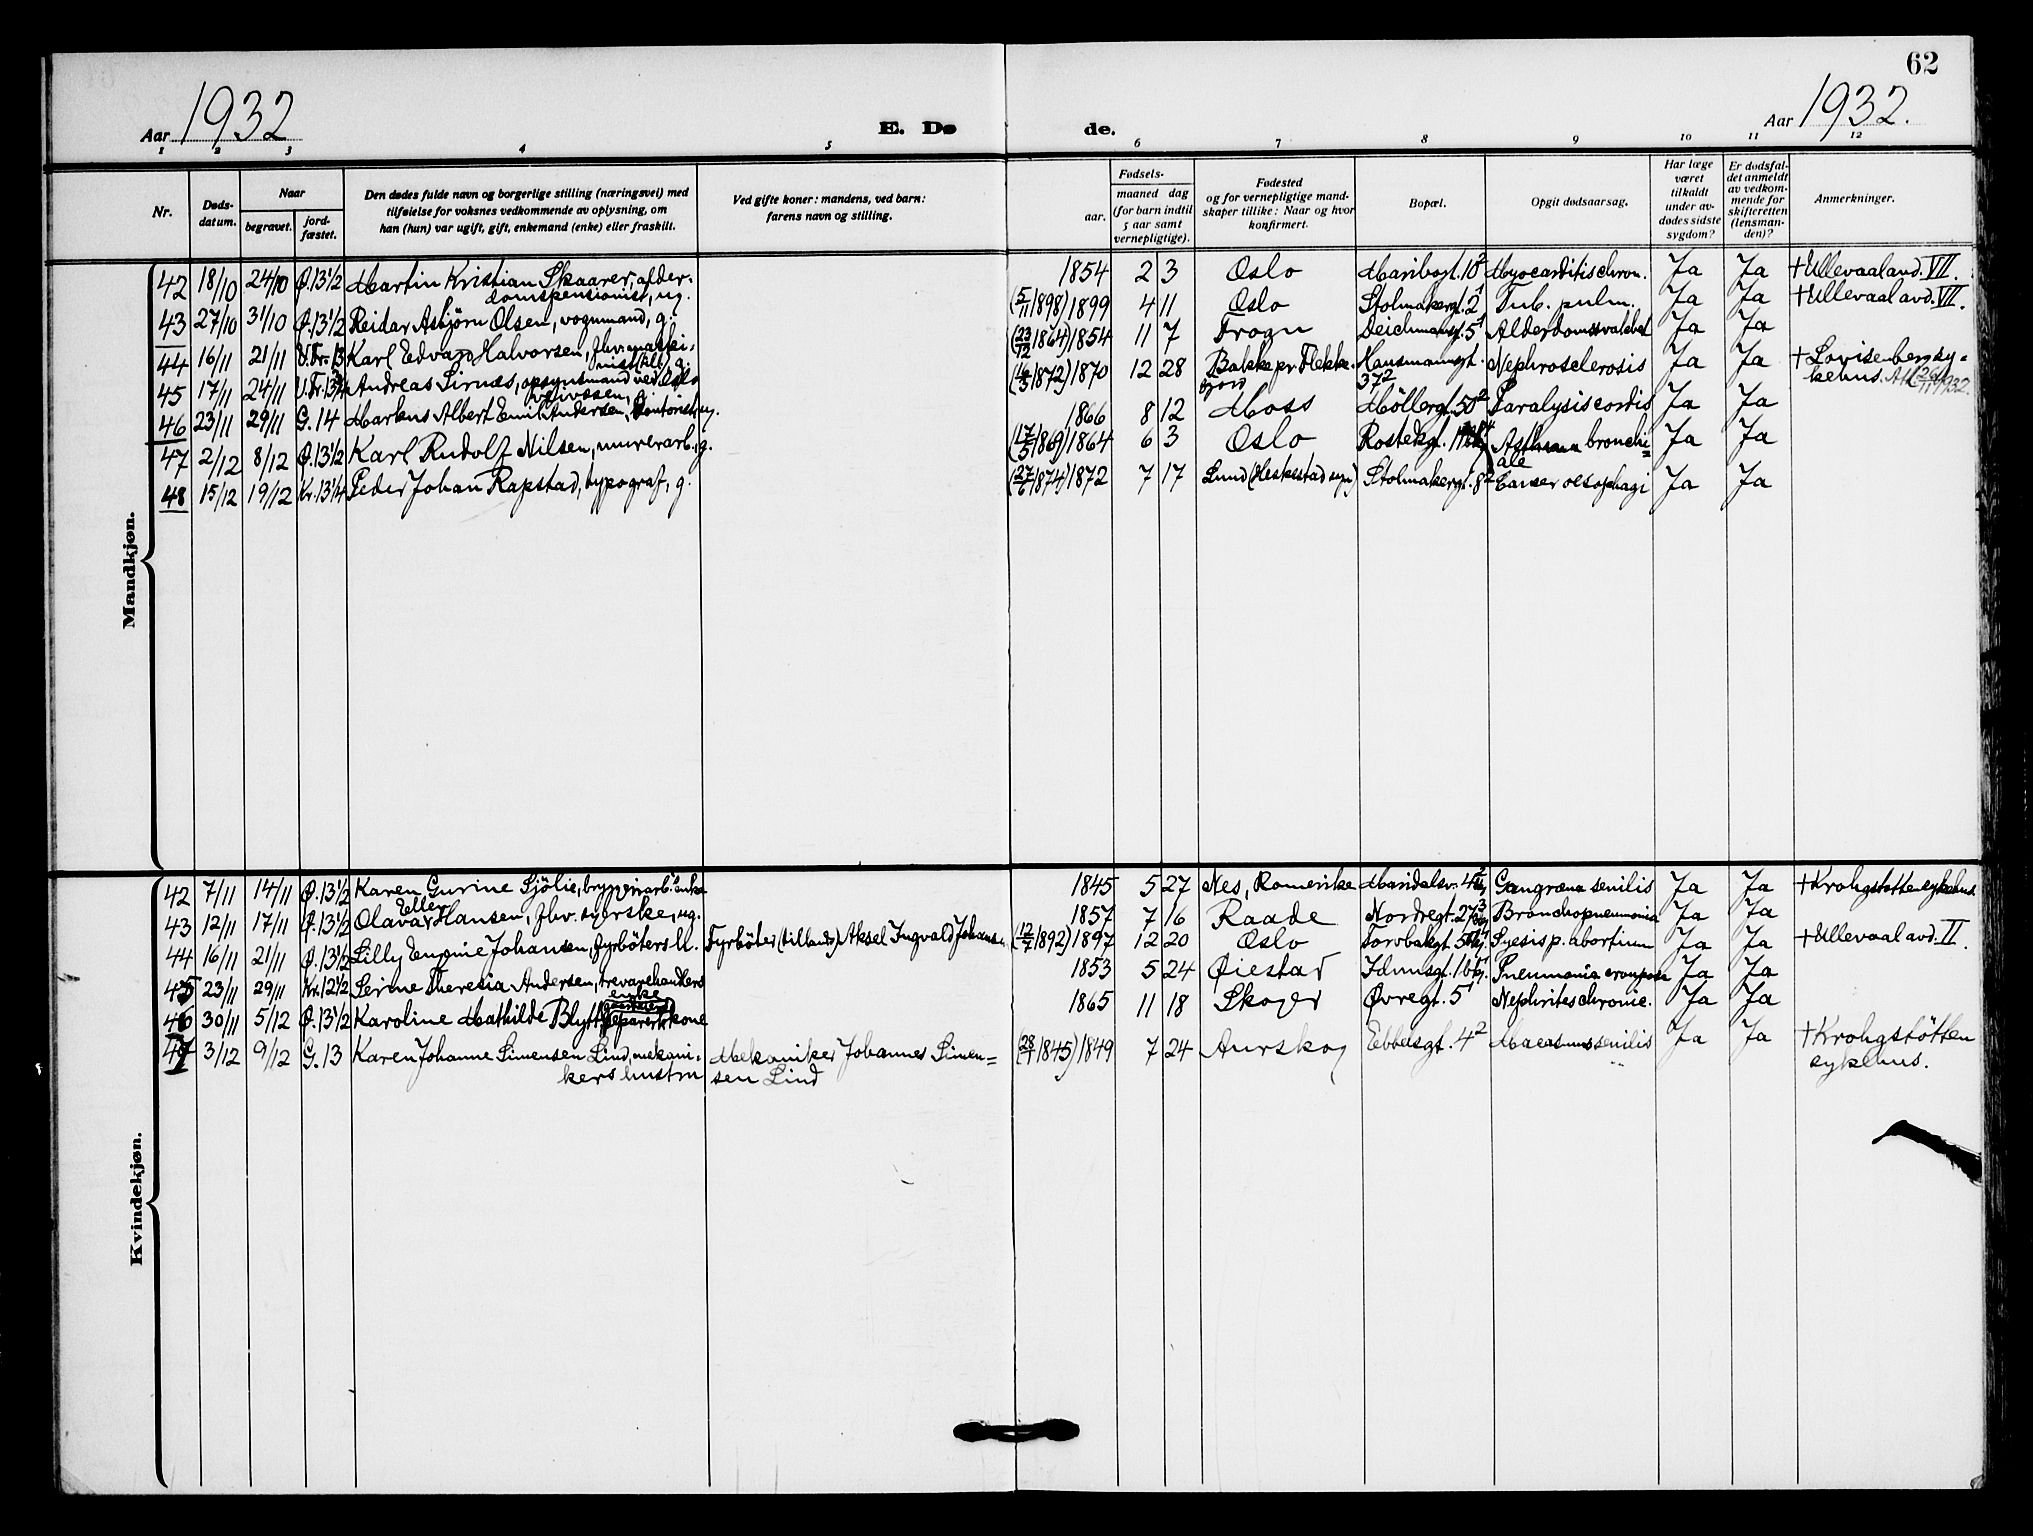 62
Aar 1932
E. Dø
de.
Aar 1932.
1 2 3 4 5 6 7 8 9 10 11 12
Nr.
Døds-
datum.
Naar
begravet.
jord-
fæstet.
Den dødes fulde navn og borgerlige stilling (næringsvei) med
tilføielse for voksnes vedkommende av oplysning, om
han (hun) var ugift, gift, enkemand (enke) eller fraskilt.
Ved gifte koner: mandens, ved barn:
farens navn og stilling.
Fødsels-
aar.
maaned dag
(for barn indtil
5 aar samt
vernepligtige).
Fødested
og for vernepligtige mand-
skaper tillike: Naar og hvor
konfirmert.
Bopæl.
Opgit dødsaarsag.
Har læge
været
tilkaldt
under av-
dødes sidste
sygdom?
Er dødsfal-
det anmeldt
av vedkom-
mende for
skifteretten
(lensman-
den)?
Anmerkninger.
Mandkjøn.
42 18/10 24/10 Ø. 13 1/2 Martin Kristian Skaarer, alder- 1854 2 3 Oslo Maribogt. 10² Myocarditis chron. Ja Ja † Ullevaal avd. VII.
domspensionist, ug.
43 27/10 31/10 Ø. 13 1/2 Reidar Asbjørn Olsen, vognmand, g. (5/11 1898) 1899 4 11 Oslo Stolmakergt. 2¹ Tub. pulm. Ja Ja † Ullevaal avd. VII.
44 16/11 21/11 V. Fr. 13 Karl Edvard Halvorsen, fhv. maski- (23/12 1864) 1854 11 7 Frogn Deichmansgt. 5¹ Alderdomssvakhet Ja Ja
45 17/11 24/11 Andreas Sirnæs, opsynsmand ved Oslo 1872) 1870 12 28 Bakke pr Flekke- Hausmannsgt. Nephrosclerosis Ja Ja † Lovisenberg sy-
fjord 37² kehus.
46 23/11 29/11 G. 14 Markus Albert Emil Andersen, kontorist, ug. 1866 8 12 Moss Møllergt. 50² Paralysis cordis Ja Ja
47 2/12 8/12 Ø. 13 1/2 Karl Rudolf Nilsen, murerarb., g. (17/5 1869) 1864 6 3 Oslo Rostedsgt. Asthma bronchi-
ale Ja Ja
48 15/12 19/12 Kr. 13 1/4 Peder Johan Rapstad, typograf, g. (27/6 1874) 1872 7 17 Lund (Heskestad sgn) Stolmakergt. 8² Cancer oesophagi Ja Ja
Kvindekjøn.
42 7/11 14/11 Ø. 13 1/2 Karen Gurine Sjölie, bryggeriarb.s enke 1845 5 27 Nes, Romerike Maridalsv. Gangræna senilis Ja Ja † Krohgstøtten sykehus
43 12/11 17/11 Ø. 13 1/2 Olava Hansen, fhv. syerske, ug. 1857 7 16 Raade Nordregt. Bronchopneumonia Ja Ja
44 16/11 21/11 Ø. 13 1/2 Lilly Eugenie Johansen, fyrböters h. Fyrböter (tillands) Aksel Ingvald Johansen (12/7 1892) 1897 12 20 Oslo Torvbakgt. abortum Ja Ja † Ullevaal avd. II.
45 23/11 29/11 Kr. 12 1/2 Serine Theresia Andersen, trevarehandlers
enke 1853 5 24 Øiestad Idunsgt. Pneumonia crouposa Ja Ja
46 30/11 5/12 Ø. 13 1/2 Karoline Mathilde Blytt, separert kone 1865 11 18 Skoger Øvregt. 5¹ Nephrites chronic. Ja Ja
47 3/12 9/12 G. 13 Karen Johanne Simensen Lind, mekani- Mekaniker Johannes Simen- (28/1 1845) 1849 7 24 Aurskog Ebbelsgt. 4² Marasmus senilis Ja Ja † Krohgstøtten
kers hustru sen Lind sykehus.